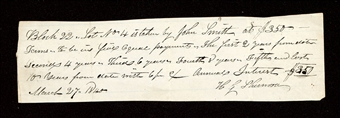 Block 32 - Lot No 4 is taken by John Smith at $350
Terms - to be in five equal payments - The first 2 years from date
second 4 years - Third 6 years - Fourth 8 years - Fifth and last
10 Years from date with 6 pr ct Annual Interest $350
March 27. H L